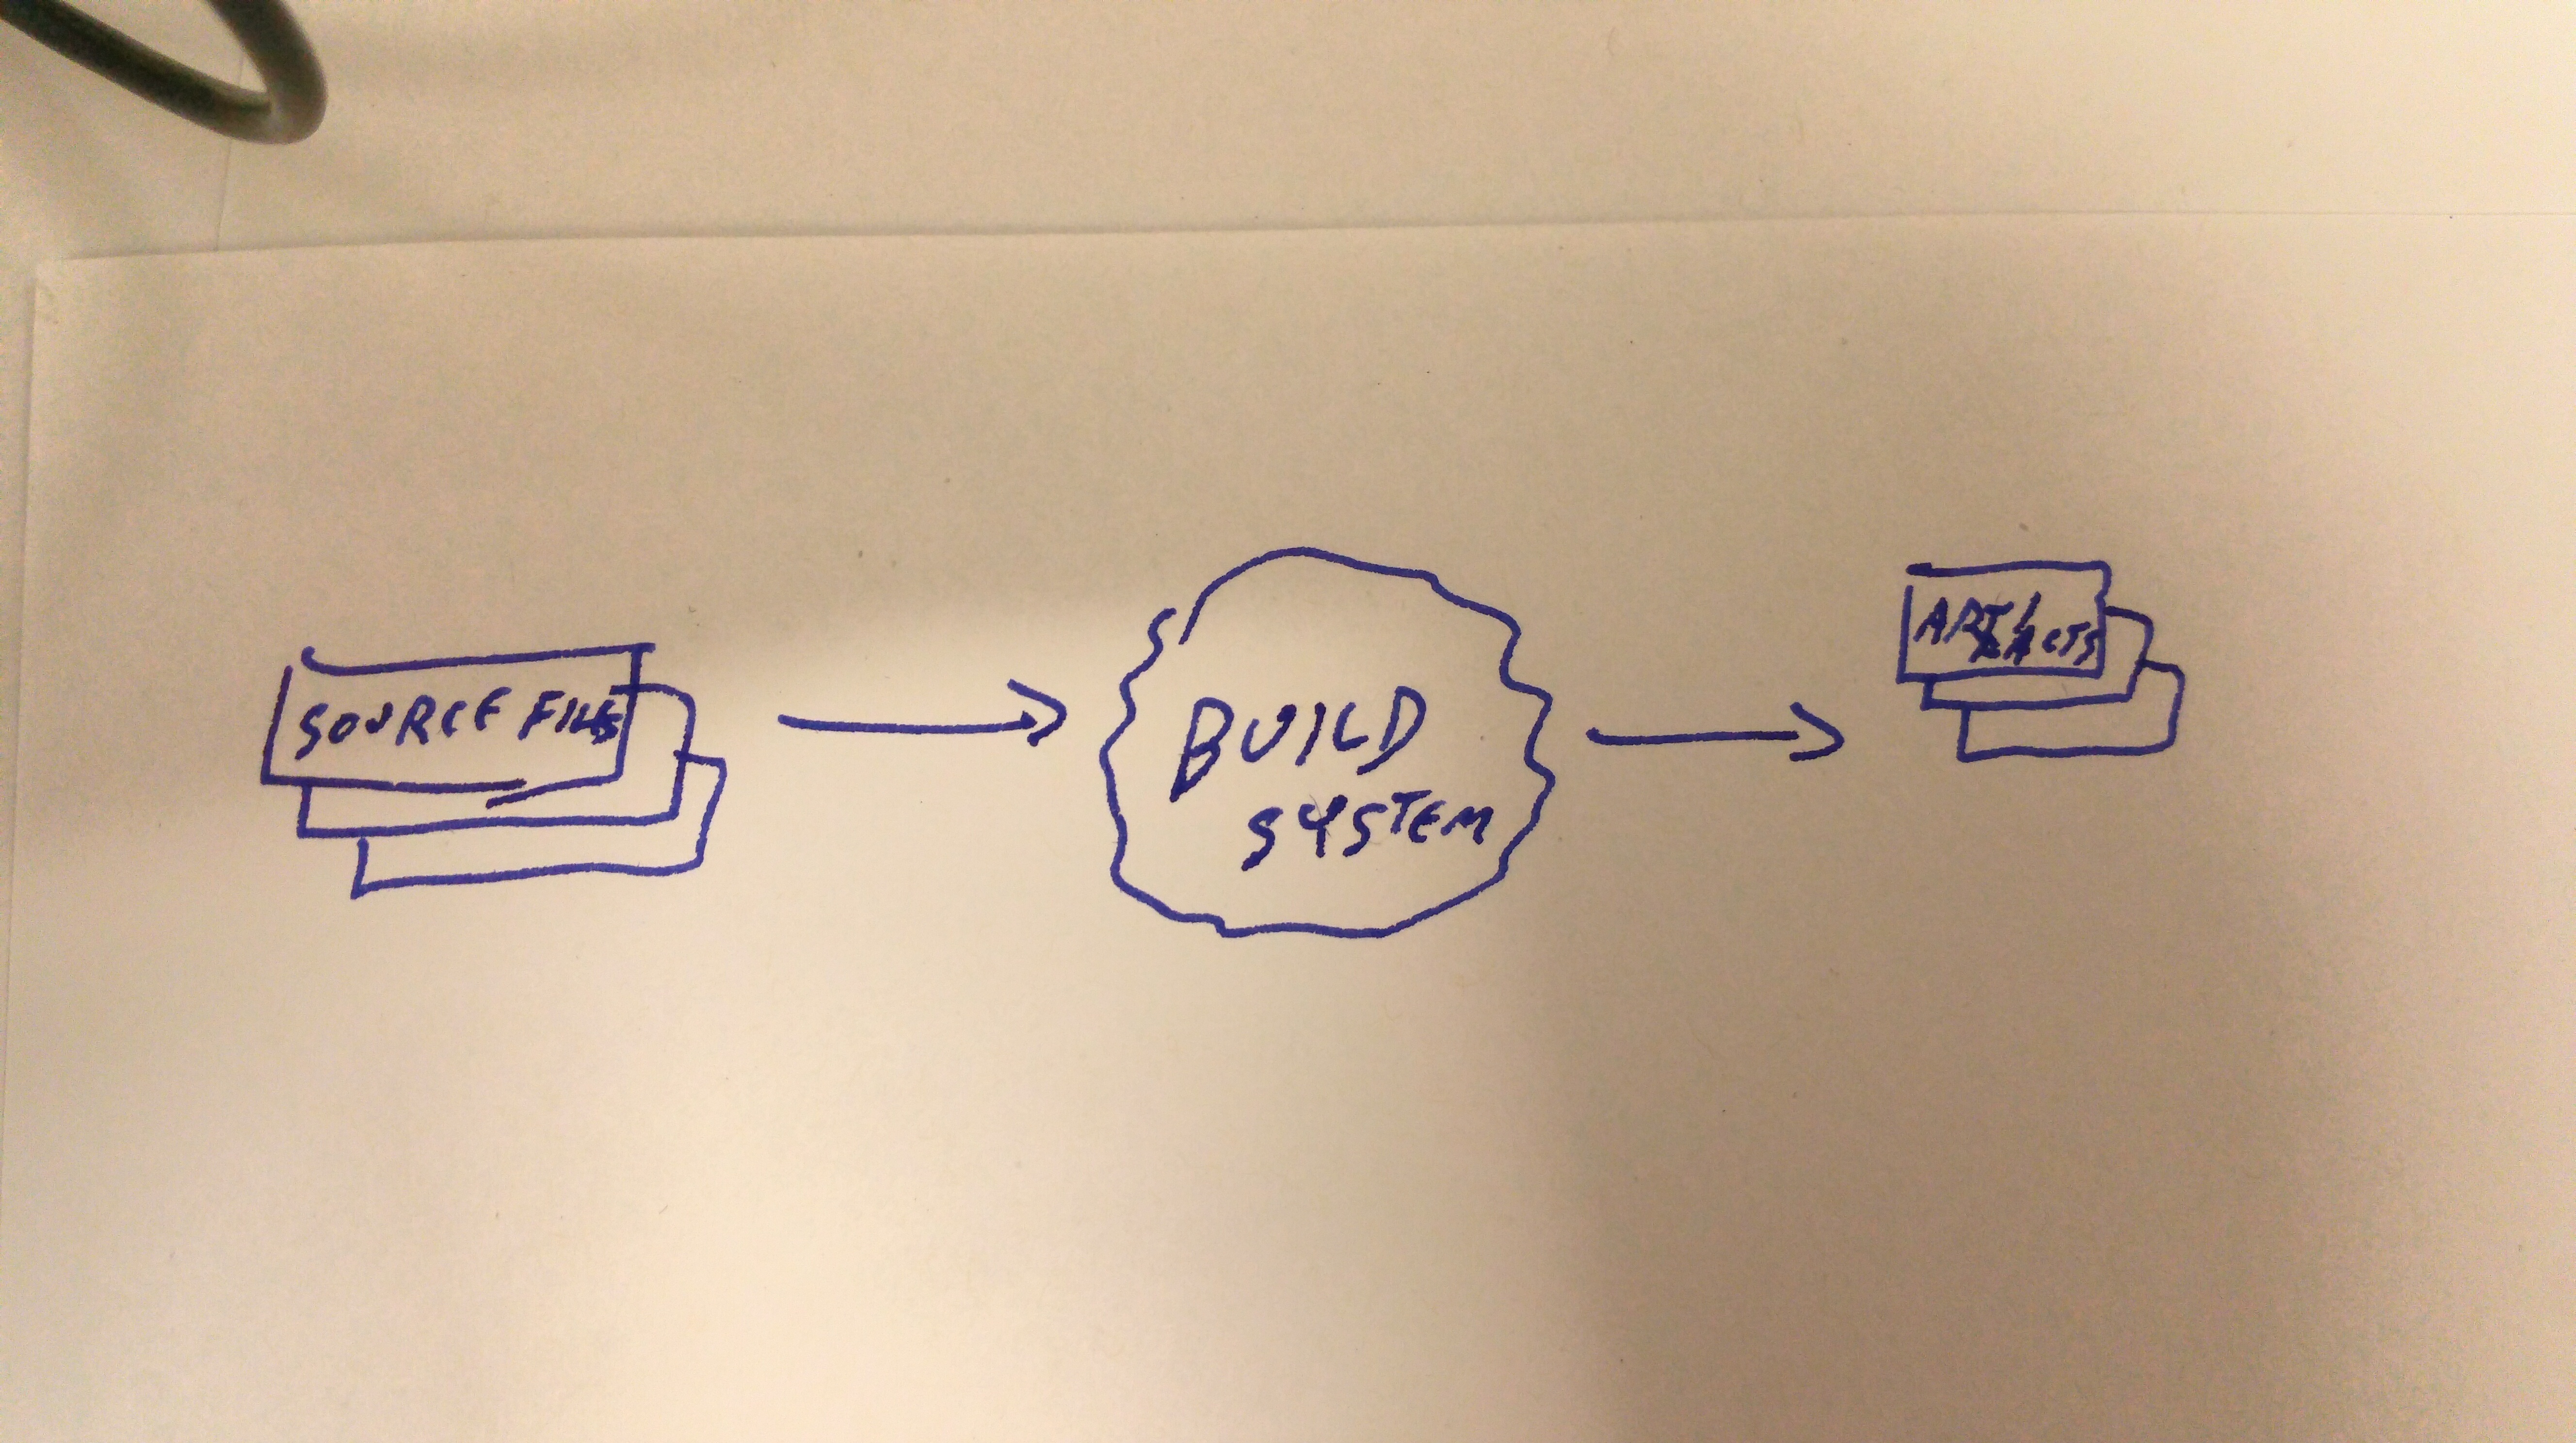 SOURCE FILES
BUILD
SYSTEM
ARTI
FACTS